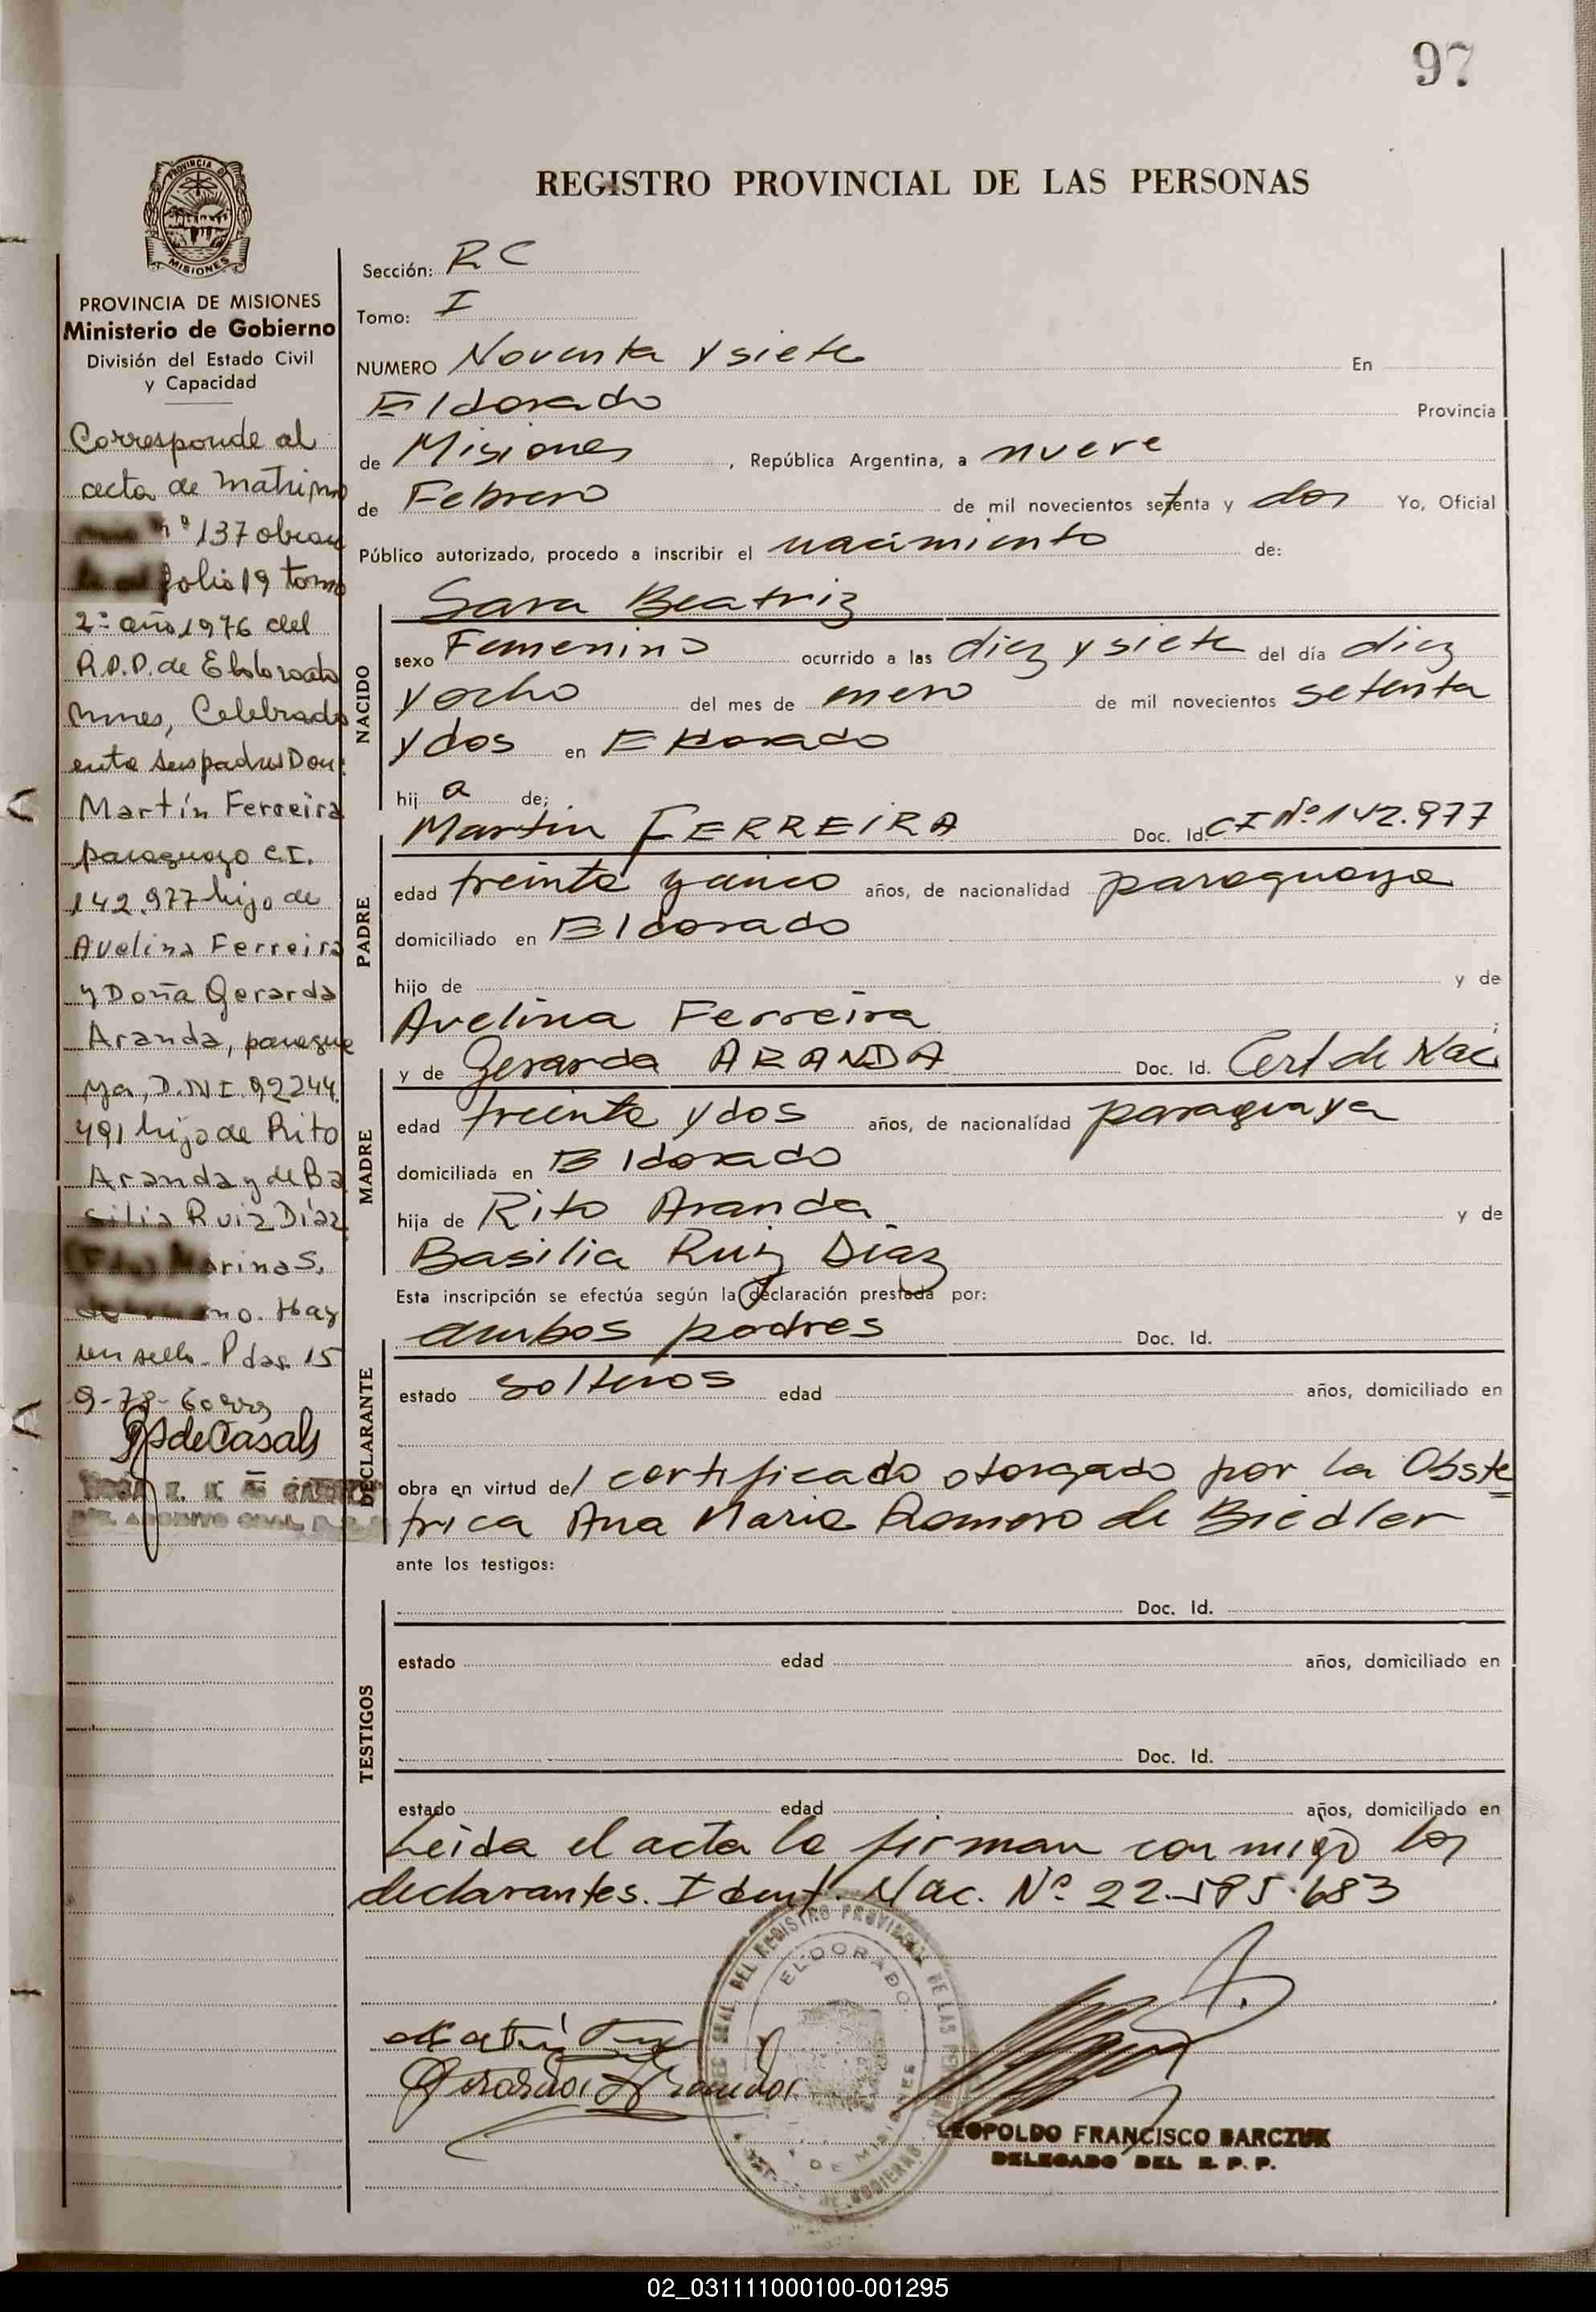 97
REGISTRO PROVINCIAL DE LAS PERSONAS
PROVINCIA DE MISIONES
Ministerio de Gobierno
División del Estado Civil
y Capacidad
Corresponde al
acta de matrimo
nº 137 obran
folio 19 tomo
2º año 1976 del
R.P.P. de Eldorado
Mnes, Celebrado
entre sus padres Don:
Martín Ferreira
paraguayo C.I.
142.977 hijo de
Avelina Ferreira
y Doña Gerarda
Aranda, paragua
ya, D.N.I. 92244
491 hija de Rito
Aranda y de Ba
silia Ruiz Díaz
arina S.
no. Hay
un sello. Pdas. 15
9-78-
de Casals
Sección: RC
Tomo: I
NUMERO Noventa y siete En
Eldorado Provincia
de Misiones, República Argentina, a nueve
de Febrero de mil novecientos setenta y dos Yo, Oficial
Público autorizado, procedo a inscribir el nacimiento de:
NACIDO
Sara Beatriz
sexo Femenino ocurrido a las diez y siete del día diez
y ocho del mes de enero de mil novecientos setenta
y dos en Eldorado
hij a de;
PADRE
Martin FERREIRA Doc. Id. CI Nº 142.977
edad treinta y cinco años, de nacionalidad paraguaya
domiciliado en Eldorado
hijo de y de
Avelina Ferreira ;
MADRE
y de Gerarda ARANDA Doc. Id. Cert de Nac
edad treinta y dos años, de nacionalidad paraguaya
domiciliada en Eldorado
hija de Rito Aranda y de
Basilia Ruiz Díaz
Esta inscripción se efectúa según la declaración prestada por:
DECLARANTE
ambos padres Doc. Id.
estado solteros edad años, domiciliado en
obra en virtud de 1 certificado otorgado por la Obste
trica Ana Maria Romero de Biedler
ante los testigos:
TESTIGOS
Doc. Id.
estado edad años, domiciliado en
Doc. Id.
estado edad años, domiciliado en
Leida el acta la firman conmigo los
declarantes. Ident. Nac. Nº 22.585.683
Gerarda Aranda
ELDORADO
DE MISIONES
LEOPOLDO FRANCISCO BARCZUK
DELEGADO DEL R. P. P.
02_031111000100-001295